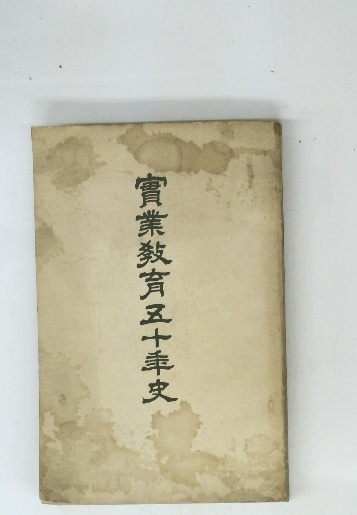 實業教育五十年史